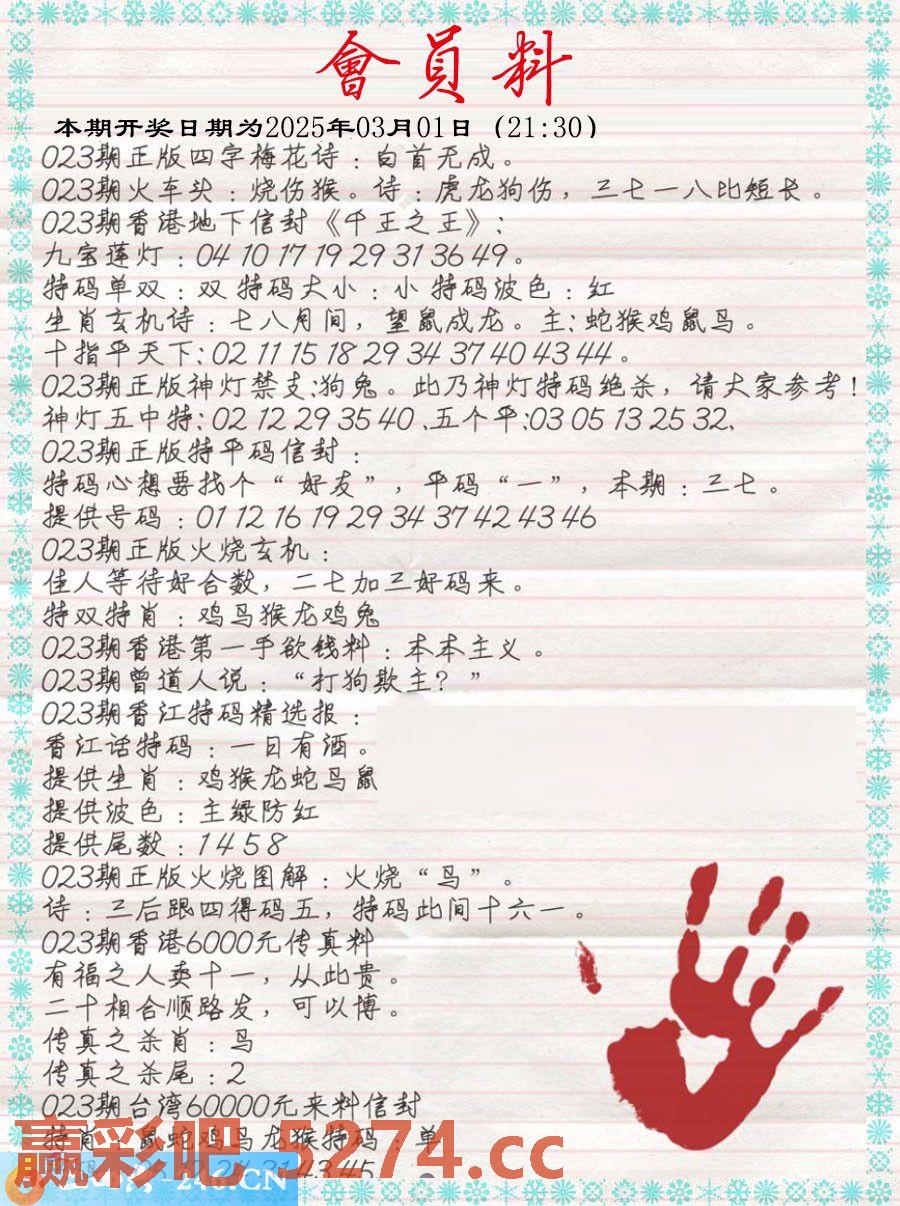 會員料
本期开奖日期为2025年03月01日（21:30）
023期正版四字梅花诗：白首无成。
023期火车头：烧伤猴。诗：虎龙狗伤，三七一八比短长。
023期香港地下信封《千王之王》：
九宝莲灯：04 10 17 19 29 31 36 49。
特码单双：双 特码大小：小 特码波色：红
生肖玄机诗：七八月间，望鼠成龙。主：蛇猴鸡鼠鸟。
十指平天下：02 11 15 18 29 34 37 40 43 44。
023期正版神灯禁支：狗兔。此乃神灯特码绝杀，请大家参考！
神灯五中特：02 12 29 35 40、五个平：03 05 13 25 32、
023期正版特平码信封：
特码心想要找个“好友”，平码“一”，本期：三七。
提供号码：01 12 16 19 29 34 37 42 43 46
023期正版火烧玄机：
佳人等待好合数，二七加三好码来。
特双特肖：鸡鸟猴龙鸡兔
023期香港第一手欲钱料：本本主义。
023期曾道人说：“打狗欺主？”
023期香江特码精选报：
香江话特码：一日有酒。
提供生肖：鸡猴龙蛇鸟鼠
提供波色：主绿防红
提供尾数：1 4 5 8
023期正版火烧图解：火烧“鸟”。
诗：三后跟四得码五，特码此间十六一。
023期香港6000元传真料
有福之人卖十一，从此贵。
二十相合顺路发，可以博。
传真之杀肖：鸟
传真之杀尾：2
023期台湾60000元来料信封
特肖：鼠蛇鸡鸟龙猴特码：单
赢彩吧 5274.cc
246.CN